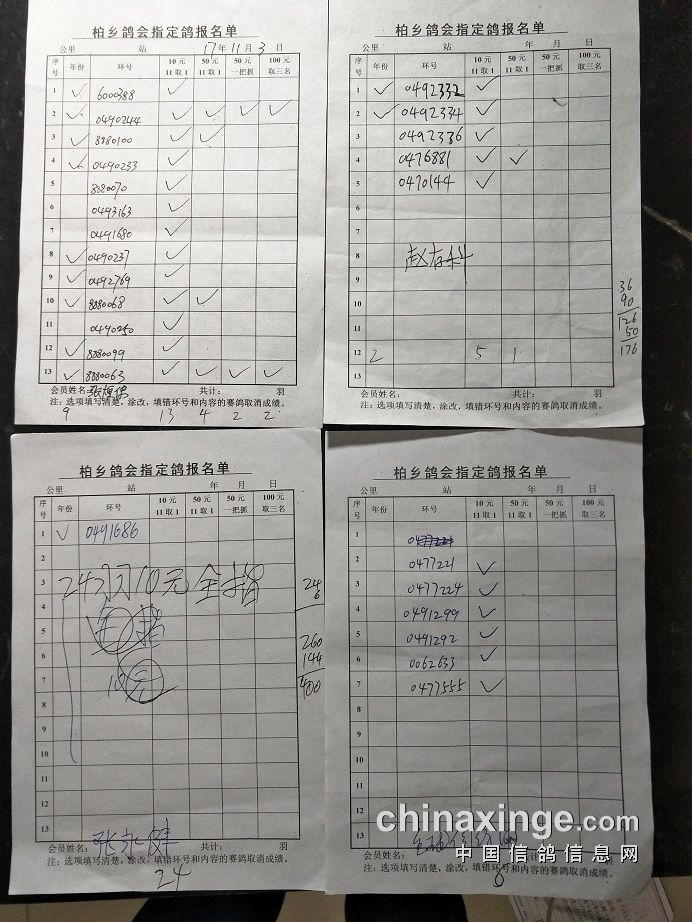 柏乡鸽会指定鸽报名单
公里 站 17年11月3日
序号 年份 环号 10元11取1 50元11取1 50元一把抓 100元取三名
1 ✓ 6000388 ✓
2 ✓ 0490244 ✓ ✓ ✓ ✓
3 ✓ 8880100 ✓ ✓
4 ✓ 0490233 ✓
5 8880070 ✓
6 0493163 ✓
7 0491680 ✓
8 ✓ 0490237 ✓
9 ✓ 0492769 ✓
10 ✓ 8880068 ✓ ✓
11 0490240 ✓
12 ✓ 8880099 ✓
13 ✓ 8880063 ✓ ✓ ✓ ✓
会员姓名: 共计: 羽
注:选项填写清楚,涂改,填错环号和内容的赛鸽取消成绩。
9 13 4 2 2
柏乡鸽会指定鸽报名单
公里 站 年 月 日
序号 年份 环号 10元11取1 50元11取1 50元一把抓 100元取三名
1 ✓ 0492332 ✓
2 ✓ 0492334 ✓
3 0492336 ✓
4 0476881 ✓ ✓
5 0470144 ✓
6
7
8 赵存科
9
10
11
12 2 5 1
13
36
90
126
50
176
会员姓名: 共计: 羽
注:选项填写清楚,涂改,填错环号和内容的赛鸽取消成绩。
柏乡鸽会指定鸽报名单
公里 站 年 月 日
序号 年份 环号 10元11取1 50元11取1 50元一把抓 100元取三名
1 ✓ 0491686
2
3 24羽10元全指
4
5 全指
6
7 10元
8
9
10
11
12
13 张永健
24
6
260
144
400
会员姓名: 共计: 羽
注:选项填写清楚,涂改,填错环号和内容的赛鸽取消成绩。
24
柏乡鸽会指定鸽报名单
公里 站 年 月 日
序号 年份 环号 10元11取1 50元11取1 50元一把抓 100元取三名
1
2 0477221 ✓
3 0477224 ✓
4 0491299 ✓
5 0491292 ✓
6 0062633 ✓
7 0477555 ✓
8
9
10
11
12
13
会员姓名: 共计: 羽
注:选项填写清楚,涂改,填错环号和内容的赛鸽取消成绩。
6
chinaxinge.com
中国信鸽信息网